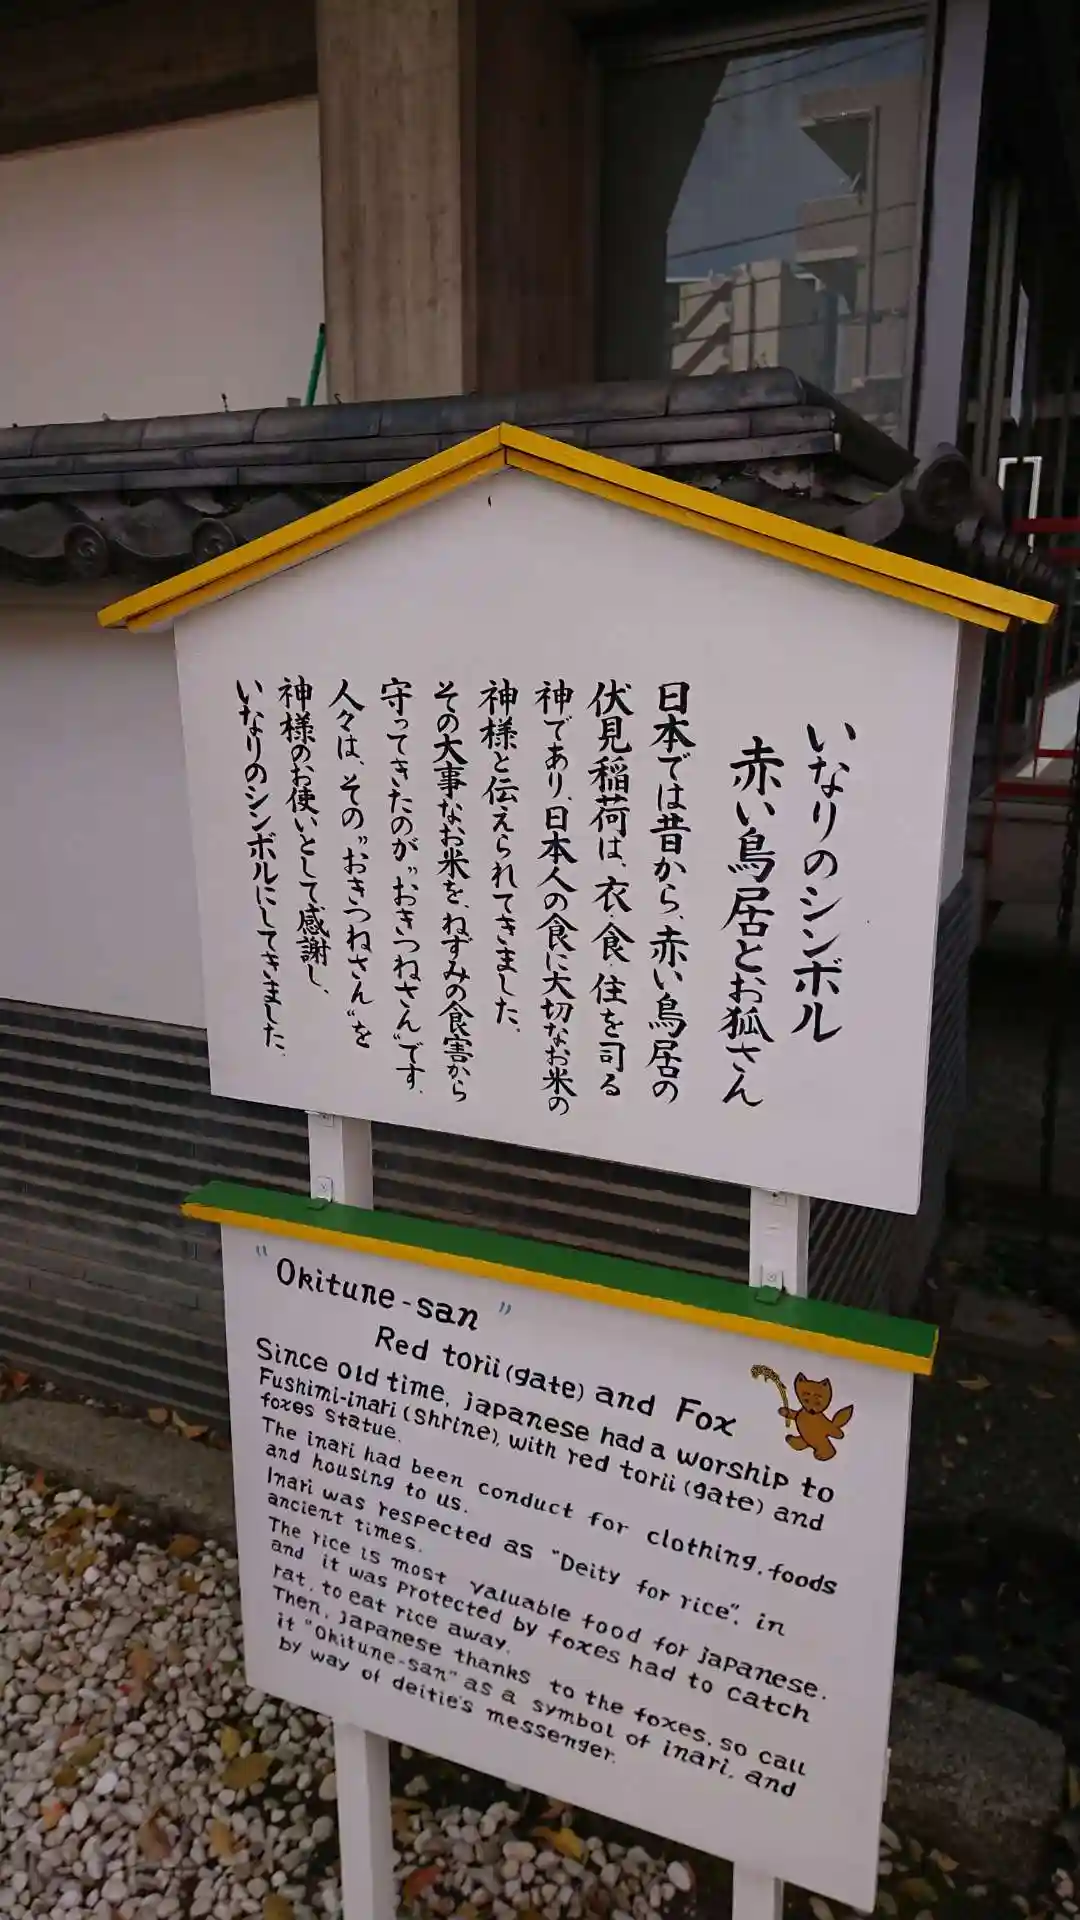 いなりのシンボル
赤い鳥居とお狐さん
日本では昔から、赤い鳥居の
伏見稲荷は、衣・食・住を司る
神であり、日本人の食に大切なお米の
神様と伝えられてきました。
その大事なお米を、ねずみの食害から
守ってきたのが、"おきつねさん"です。
人々は、その"おきつねさん"を
神様のお使いとして感謝し、
いなりのシンボルにしてきました。
"Okitune-san"
Red torii (gate) and Fox
Since old time, japanese had a worship to
Fushimi-inari (Shrine), with red torii (gate) and
foxes statue.
The inari had been conduct for clothing, foods
and housing to us.
Inari was respected as "Deity for rice", in
ancient times.
The rice is most valuable food for japanese.
and it was protected by foxes had to catch
rat, to eat rice away.
Then, japanese thanks to the foxes, so call
it "Okitune-san" as a symbol of inari, and
by way of deitie's messenger.